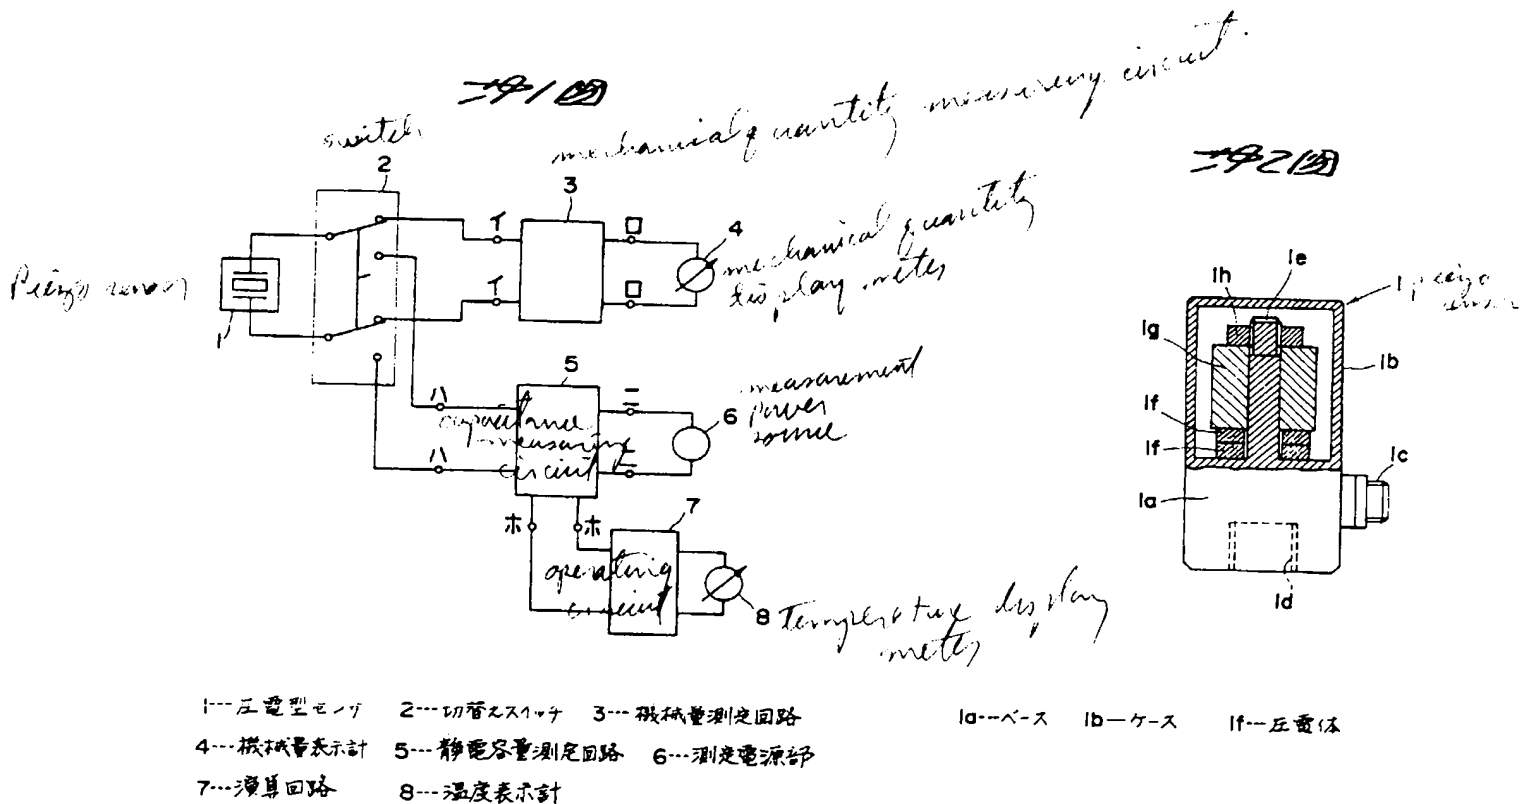 オ1図
mechanical quantity measuring circuit.
switch
2
3
イ
ロ
4
mechanical quantity
display meter
イ
ロ
Piezo sensor
1
5
ハ
ニ
capacitance
measuring
circuit
ハ
ニ
6
measurement
power
source
ホ
ホ
7
operating
circuit
8
temperature display
meter
オ2図
1h
1e
1 piezo
sensor
1g
1b
1f
1f
1c
1a
1d
1---圧電型センサ 2---切替えスイッチ 3---機械量測定回路
4---機械量表示計 5---静電容量測定回路 6---測定電源部
7---演算回路 8---温度表示計
1a---ベース 1b---ケース 1f---圧電体